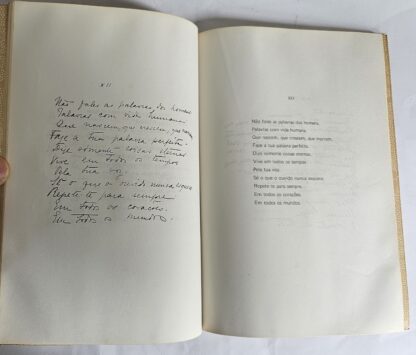 XII
Não fales as palavras dos homens
Palavras com vida humana
Que nascem, que crescem, que morrem
Faze a tua palavra perfeita
Dize somente coisas eternas
Vive em todos os tempos
Pela tua voz.
Sê o que o ouvido nunca esquece
Repete-te para sempre
Em todos os corações.
Em todos os mundos.
XII
Não fales as palavras dos homens.
Palavras com vida humana.
Que nascem, que crescem, que morrem.
Faze a tua palavra perfeita.
Dize somente coisas eternas.
Vive em todos os tempos
Pela tua voz.
Sê o que o ouvido nunca esquece.
Repete-te para sempre.
Em todos os corações.
Em todos os mundos.